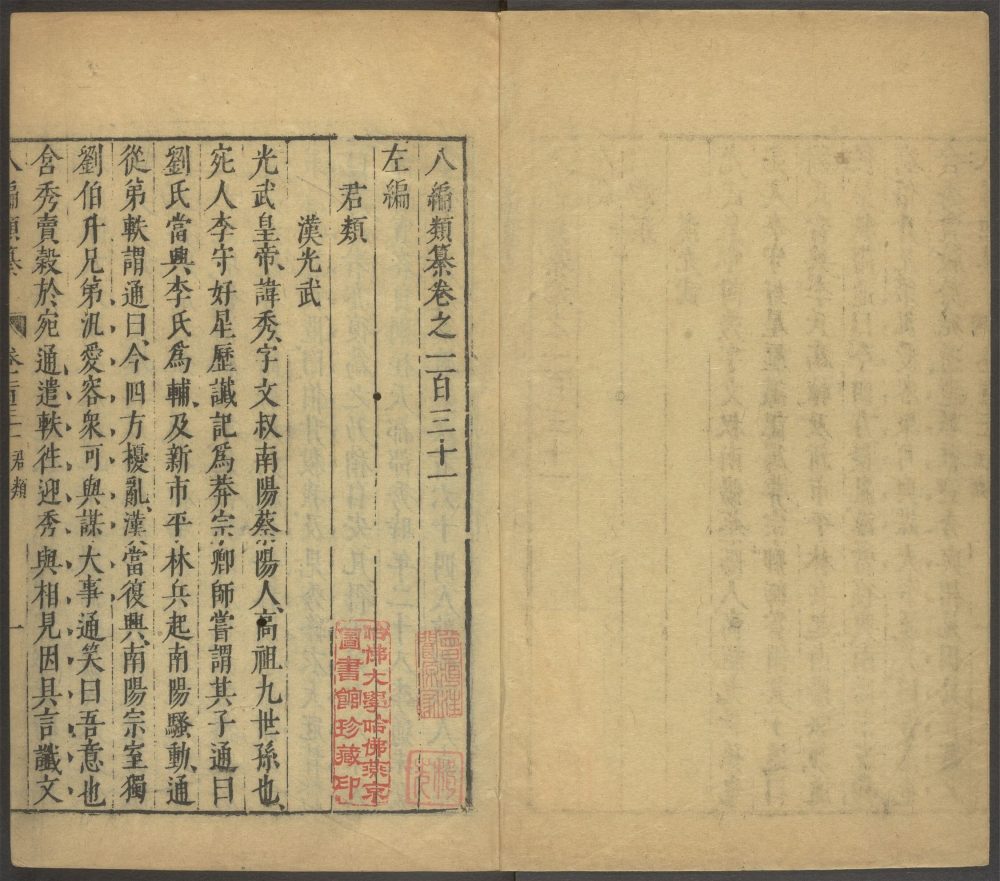 八編類纂卷之二百三十一
左編
君類
漢光武
光武皇帝、諱秀、字文叔南陽蔡陽人、高祖九世孫也、
宛人李守好星歷讖記爲莽宗卿師嘗謂其子通曰
劉氏當興李氏爲輔及新市平林兵起南陽騷動通
從弟軼謂通曰今四方擾亂漢當復興南陽宗室獨
劉伯升兄弟汎愛容衆可與謀大事通笑曰吾意也
會秀賣榖於宛通遣軼徃迎秀與相見因具言讖文
八編類纂
君類
一
哈佛大學哈佛燕京
圖書館珍藏印